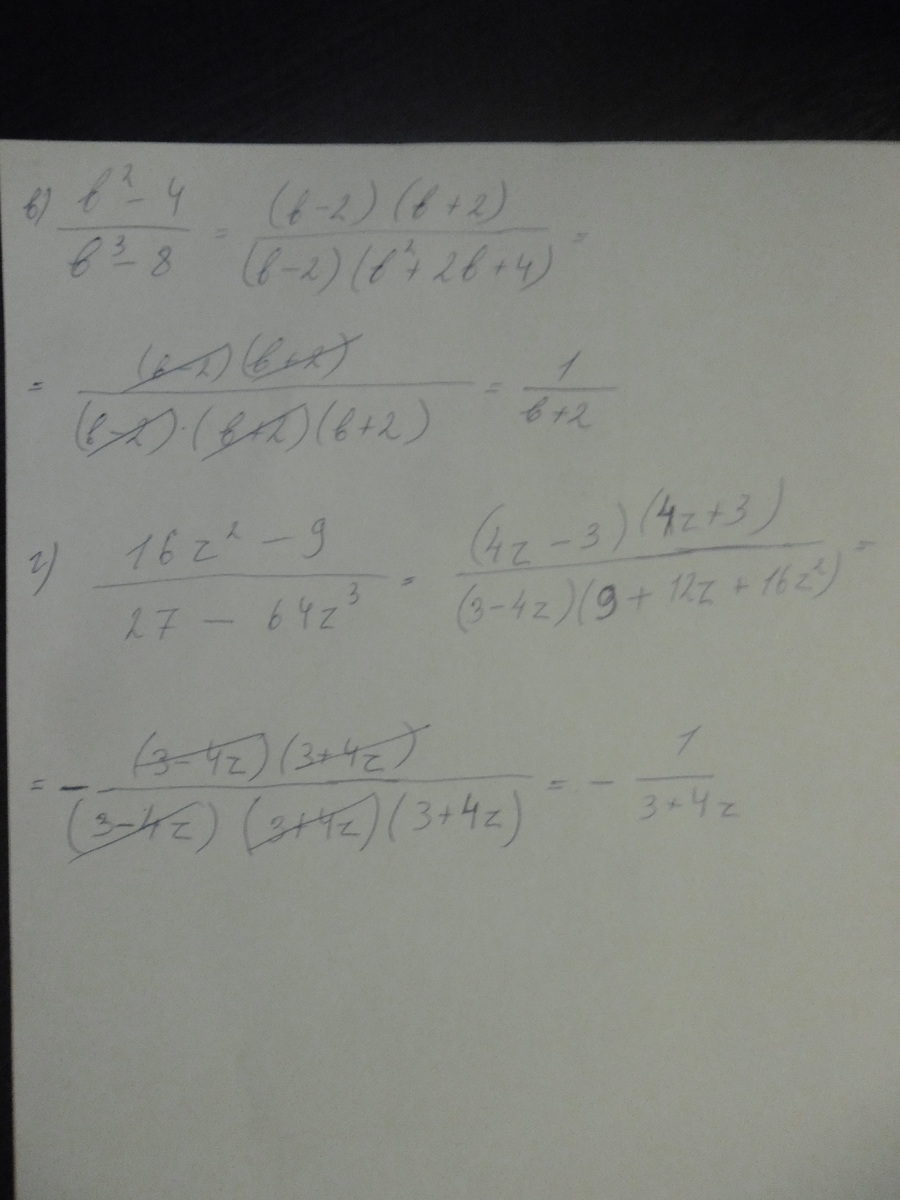 в) (b² - 4)/(b³ - 8) = ((b-2)(b+2))/((b-2)(b²+2b+4)) =
= ((b-2)(b+2))/((b-2)·(b+2)(b+2)) = 1/(b+2)
г) (16z² - 9)/(27 - 64z³) = ((4z-3)(4z+3))/((3-4z)(9+12z+16z²)) =
= - ((3-4z)(3+4z))/((3-4z)(3+4z)(3+4z)) = - 1/(3+4z)